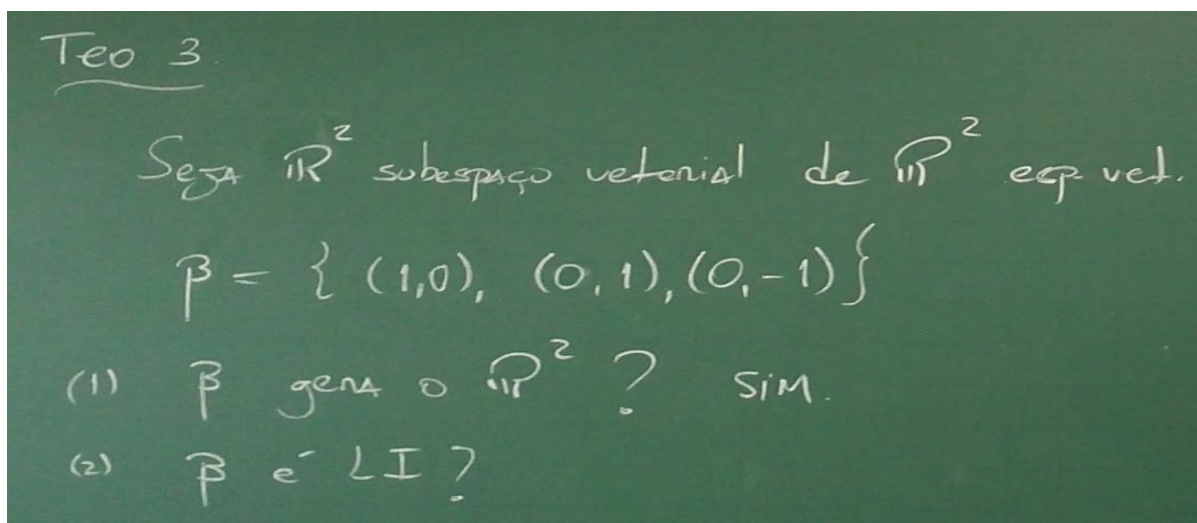 Teo 3.
Seja ℝ² subespaço vetorial de ℝ² esp. vet.
β = { (1,0), (0,1), (0,-1)}
(1) β gera o ℝ² ? SIM.
(2) β é LI?